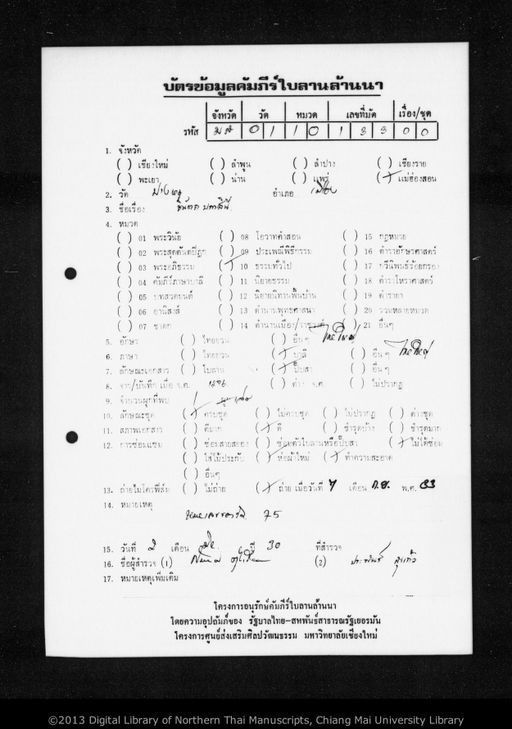 บัตรข้อมูลคัมภีร์ใบลานล้านนา
จังหวัด วัด หมวด เลขที่มัด เรื่อง/ชุด
รหัส มส 0 1 1 0 1 0 0
1. จังหวัด
( ) เชียงใหม่ ( ) ลำพูน ( ) ลำปาง ( ) เชียงราย
( ) พะเยา ( ) น่าน ( ) แพร่ ( ) แม่ฮ่องสอน
2. วัด อำเภอ เมือง
3. ชื่อเรื่อง
4. หมวด
( ) 01 พระวินัย ( ) 08 โอวาทคำสอน ( ) 15 กฎหมาย
( ) 02 พระสุตตันตปิฎก ( ) 09 ประเพณีพิธีกรรม ( ) 16 ตำราอักษรศาสตร์
( ) 03 พระอภิธรรม ( ) 10 ธรรมทั่วไป ( ) 17 กวีนิพนธ์ร้อยกรอง
( ) 04 คัมภีร์ภาษาบาลี ( ) 11 นิยายธรรม ( ) 18 ตำราโหราศาสตร์
( ) 05 บทสวดมนต์ ( ) 12 นิยายนิทานพื้นบ้าน ( ) 19 ตำรายา
( ) 06 อานิสงส์ ( ) 13 ตำนานพุทธศาสนา ( ) 20 รวมหลายหมวด
( ) 07 ชาดก ( ) 14 ตำนานเมือง/ ( ) 21 อื่นๆ
5. อักษร ( ) ไทยยวน ( ) อื่นๆ ไทใหญ่
6. ภาษา ( ) ไทยยวน ( ) บาลี ( ) อื่นๆ ไทใหญ่
7. ลักษณะเอกสาร ( ) ใบลาน ( ) พับสา ( ) อื่นๆ
8. จาร/บันทึก เมื่อ จ.ศ. ( ) ( ) ไม่ปรากฏ
9. จำนวนผูกที่พบ 1
10. ลักษณะชุด ( ) ครบชุด ( ) ไม่ครบชุด ( ) ไม่ปรากฏ ( ) ต่างชุด
11. สภาพเอกสาร ( ) ดีมาก ( ) ดี ( ) ชำรุดบ้าง ( ) ชำรุดมาก
12. การซ่อมแซม ( ) ซ่อมสายสยอง ( ) ซ่อมตัวใบลานหรือปั๊บสา ( ) ไม่ได้ซ่อม
( ) ใส่ไม้ประกับ ( ) ห่อผ้าใหม่ ( ) ทำความสะอาด
( ) อื่นๆ
13. ถ่ายไมโครฟิล์ม ( ) ไม่ถ่าย ( ) ถ่าย เมื่อวันที่ 7 เดือน ก.ย. พ.ศ. 33
14. หมายเหตุ
75
15. วันที่ 2 เดือน ปี 30 ที่สำรวจ
16. ชื่อผู้สำรวจ (1) (2)
17. หมายเหตุเพิ่มเติม
โครงการอนุรักษ์คัมภีร์ใบลานล้านนา
โดยความอุปถัมภ์ของ รัฐบาลไทย-สหพันธ์สาธารณรัฐเยอรมัน
โครงการศูนย์ส่งเสริมศิลปวัฒนธรรม มหาวิทยาลัยเชียงใหม่
©2013 Digital Library of Northern Thai Manuscripts, Chiang Mai University Library